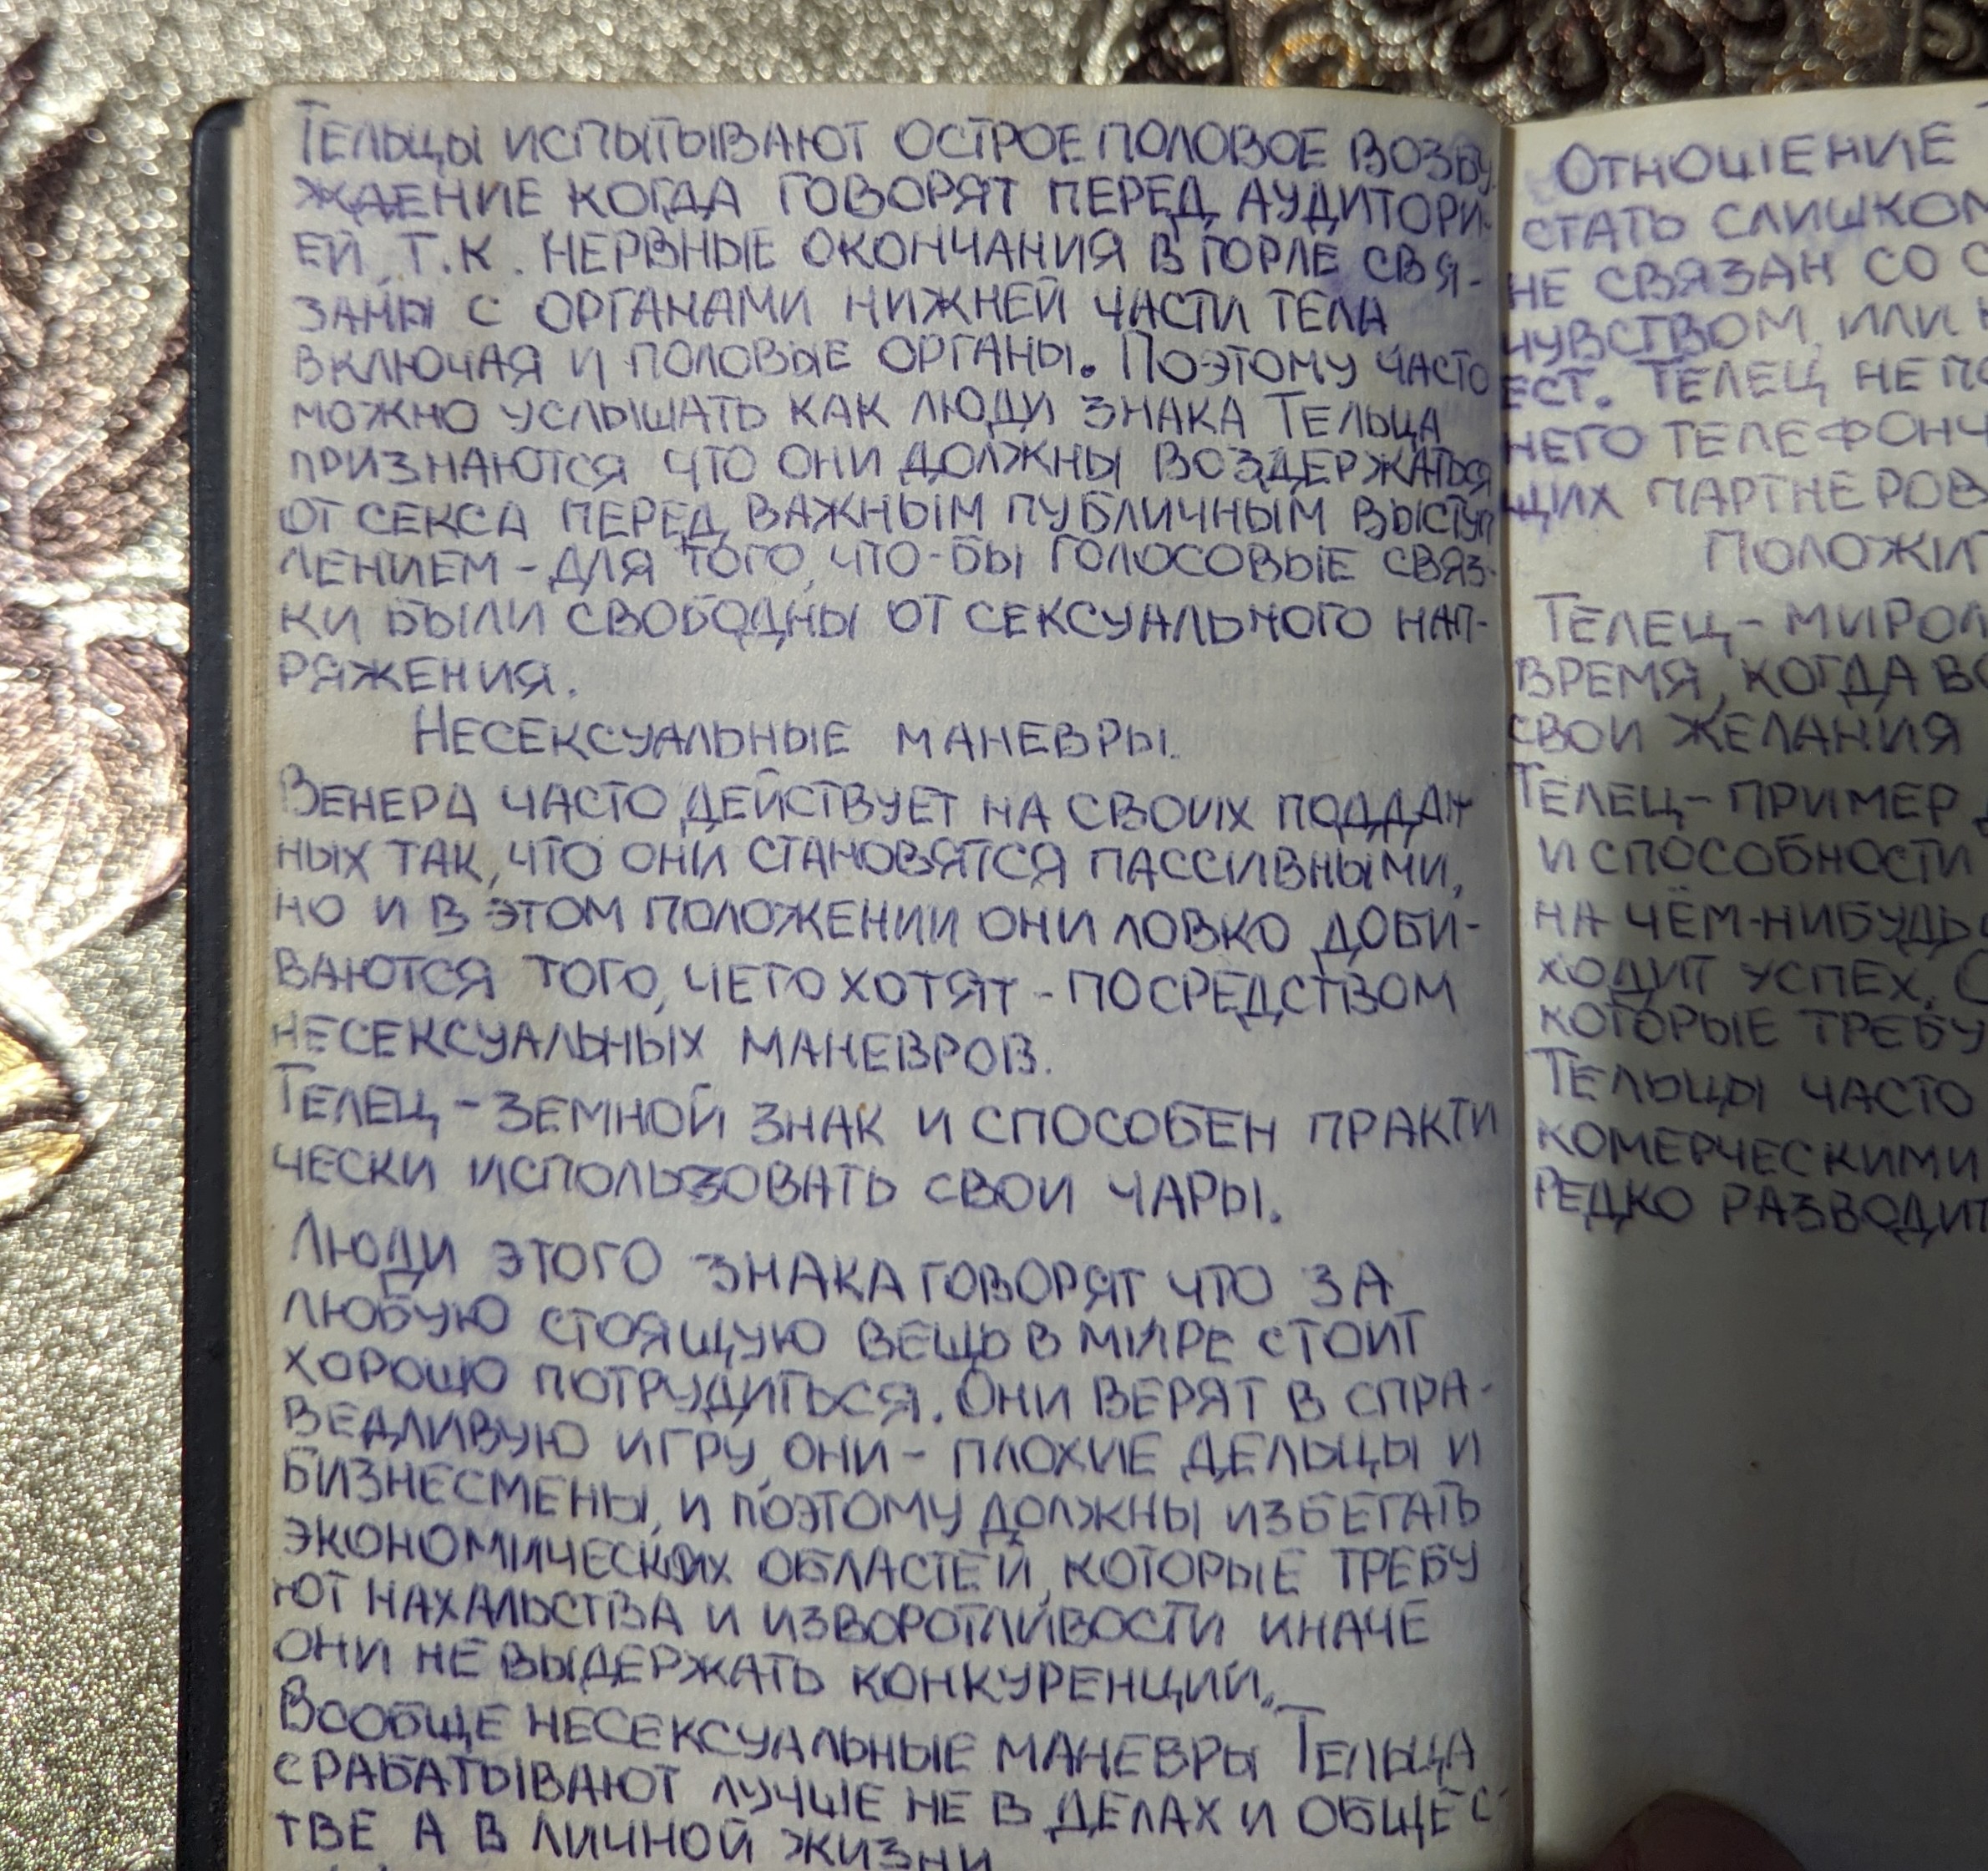 Тельцы испытывают острое половое возбу-
ждение когда говорят перед аудитори-
ей, т.к. нервные окончания в горле свя-
заны с органами нижней части тела
включая и половые органы. Поэтому часто
можно услышать как люди знака Тельца
признаются что они должны воздержаться
от секса перед важным публичным выступ
лением - для того, что-бы голосовые связ-
ки были свободны от сексуального нап-
ряжения.
Несексуальные маневры.
Венера часто действует на своих поддан
ных так, что они становятся пассивными,
но и в этом положении они ловко доби-
ваются того, чего хотят - посредством
несексуальных маневров.
Телец - земной знак и способен практи
чески использовать свои чары.
Люди этого знака говорят что за
любую стоящую вещь в мире стоит
хорошо потрудиться. Они верят в спра-
ведливую игру, они - плохие дельцы и
бизнесмены, и поэтому должны избегать
экономических областей, которые требу
ют нахальства и изворотливости иначе
они не выдержать конкуренции.
Вообще несексуальные маневры Тельца
срабатывают лучше не в делах и общес-
тве а в личной жизни
Отношение
стать слишком
не связан со с
чувством, или
ест. Телец не по
него телефонч
щих партнеров
Положит
Телец - мирол
время, когда вс
свои желания
Телец - пример д
и способности
на чём-нибудь с
ходит успех. С
которые требу
Тельцы часто
комерческими
редко разводит